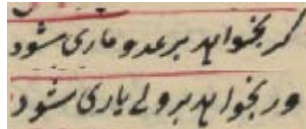 گر بخواهد بر عدو ماری شود
ور بخواهد بر ولے یاری شود